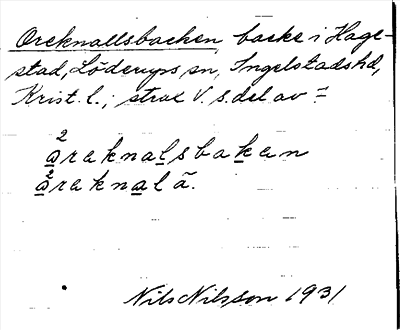 Oreknallsbacken, backe i Hage-
stad, Löderups sn, Ingelstads hd,
Krist. l.; strax V. s. del av =
²areknalsbaken
²areknalã.
Nils Nilsson 1931